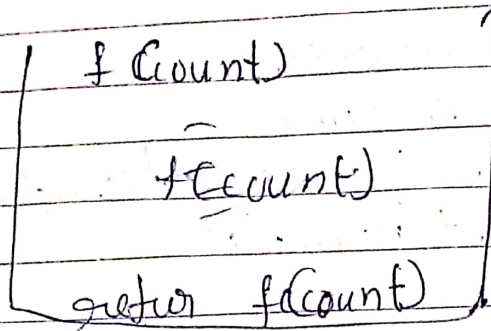 f (count)
f(count)
retur f(count)